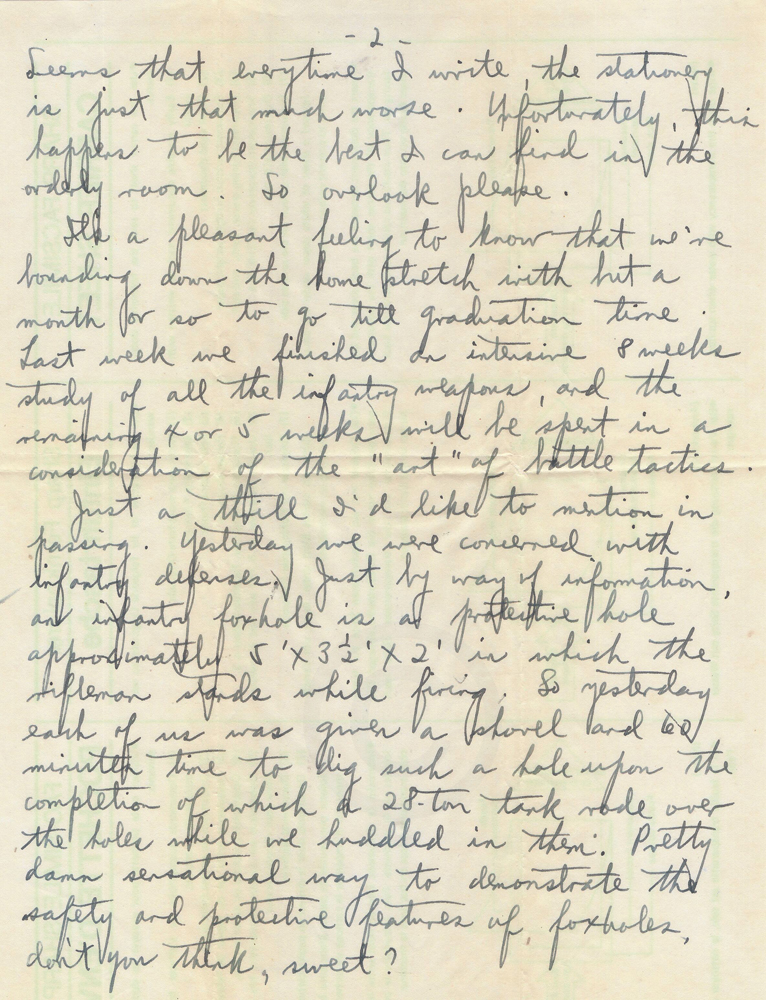 - 2 -
Seems that everytime I write, the stationery
is just that much worse. Unfortunately, this
happens to be the best I can find in the
orderly room. So overlook please.
It's a pleasant feeling to know that we're
bounding down the home stretch with but a
month or so to go till graduation time.
Last week we finished an intensive 8 weeks
study of all the infantry weapons, and the
remaining 4 or 5 weeks will be spent in a
consideration of the "art" of battle tactics.
Just a thrill I'd like to mention in
passing. Yesterday we were concerned with
infantry defenses. Just by way of information,
an infantry foxhole is a protective hole
approximately 5' X 3½' X 2' in which the
rifleman stands while firing. So yesterday
each of us was given a shovel and 60
minutes time to dig such a hole upon the
completion of which a 28-ton tank rode over
the holes while we huddled in them. Pretty
damn sensational way to demonstrate the
safety and protective features of foxholes,
don't you think, sweet?